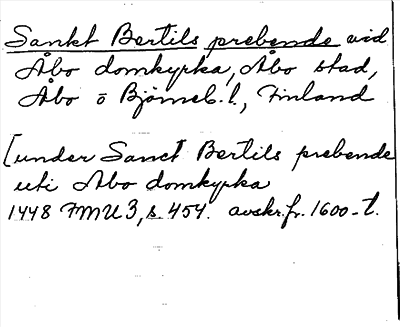 Sankt Bertils prebende vid
Åbo domkyrka, Åbo stad,
Åbo o Björneb. l., Finland
[under Sanct Bertils prebende
uti Abo domkyrka
1448 FMU 3, s. 454. avskr. fr. 1600-t.